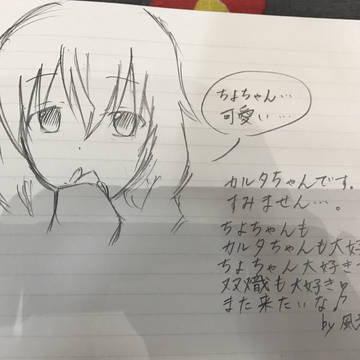 ちよちゃん…
可愛い…
カルタちゃんです。
すみません…。
ちよちゃんも
カルタちゃんも大好
ちよちゃん大好き
双熾も大好き♪
また来たいな♪
by 風